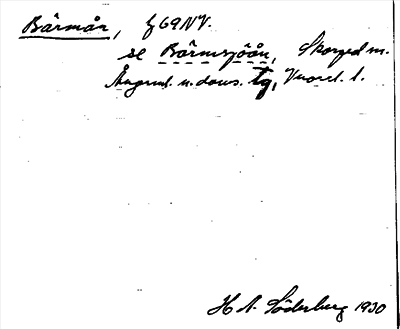 Bärmån, f 69 NV.
se Bärmsjöån, Skorped m.
Ångml. n. doms. tg, Vnorrl. l.
H A. Söderberg 1930